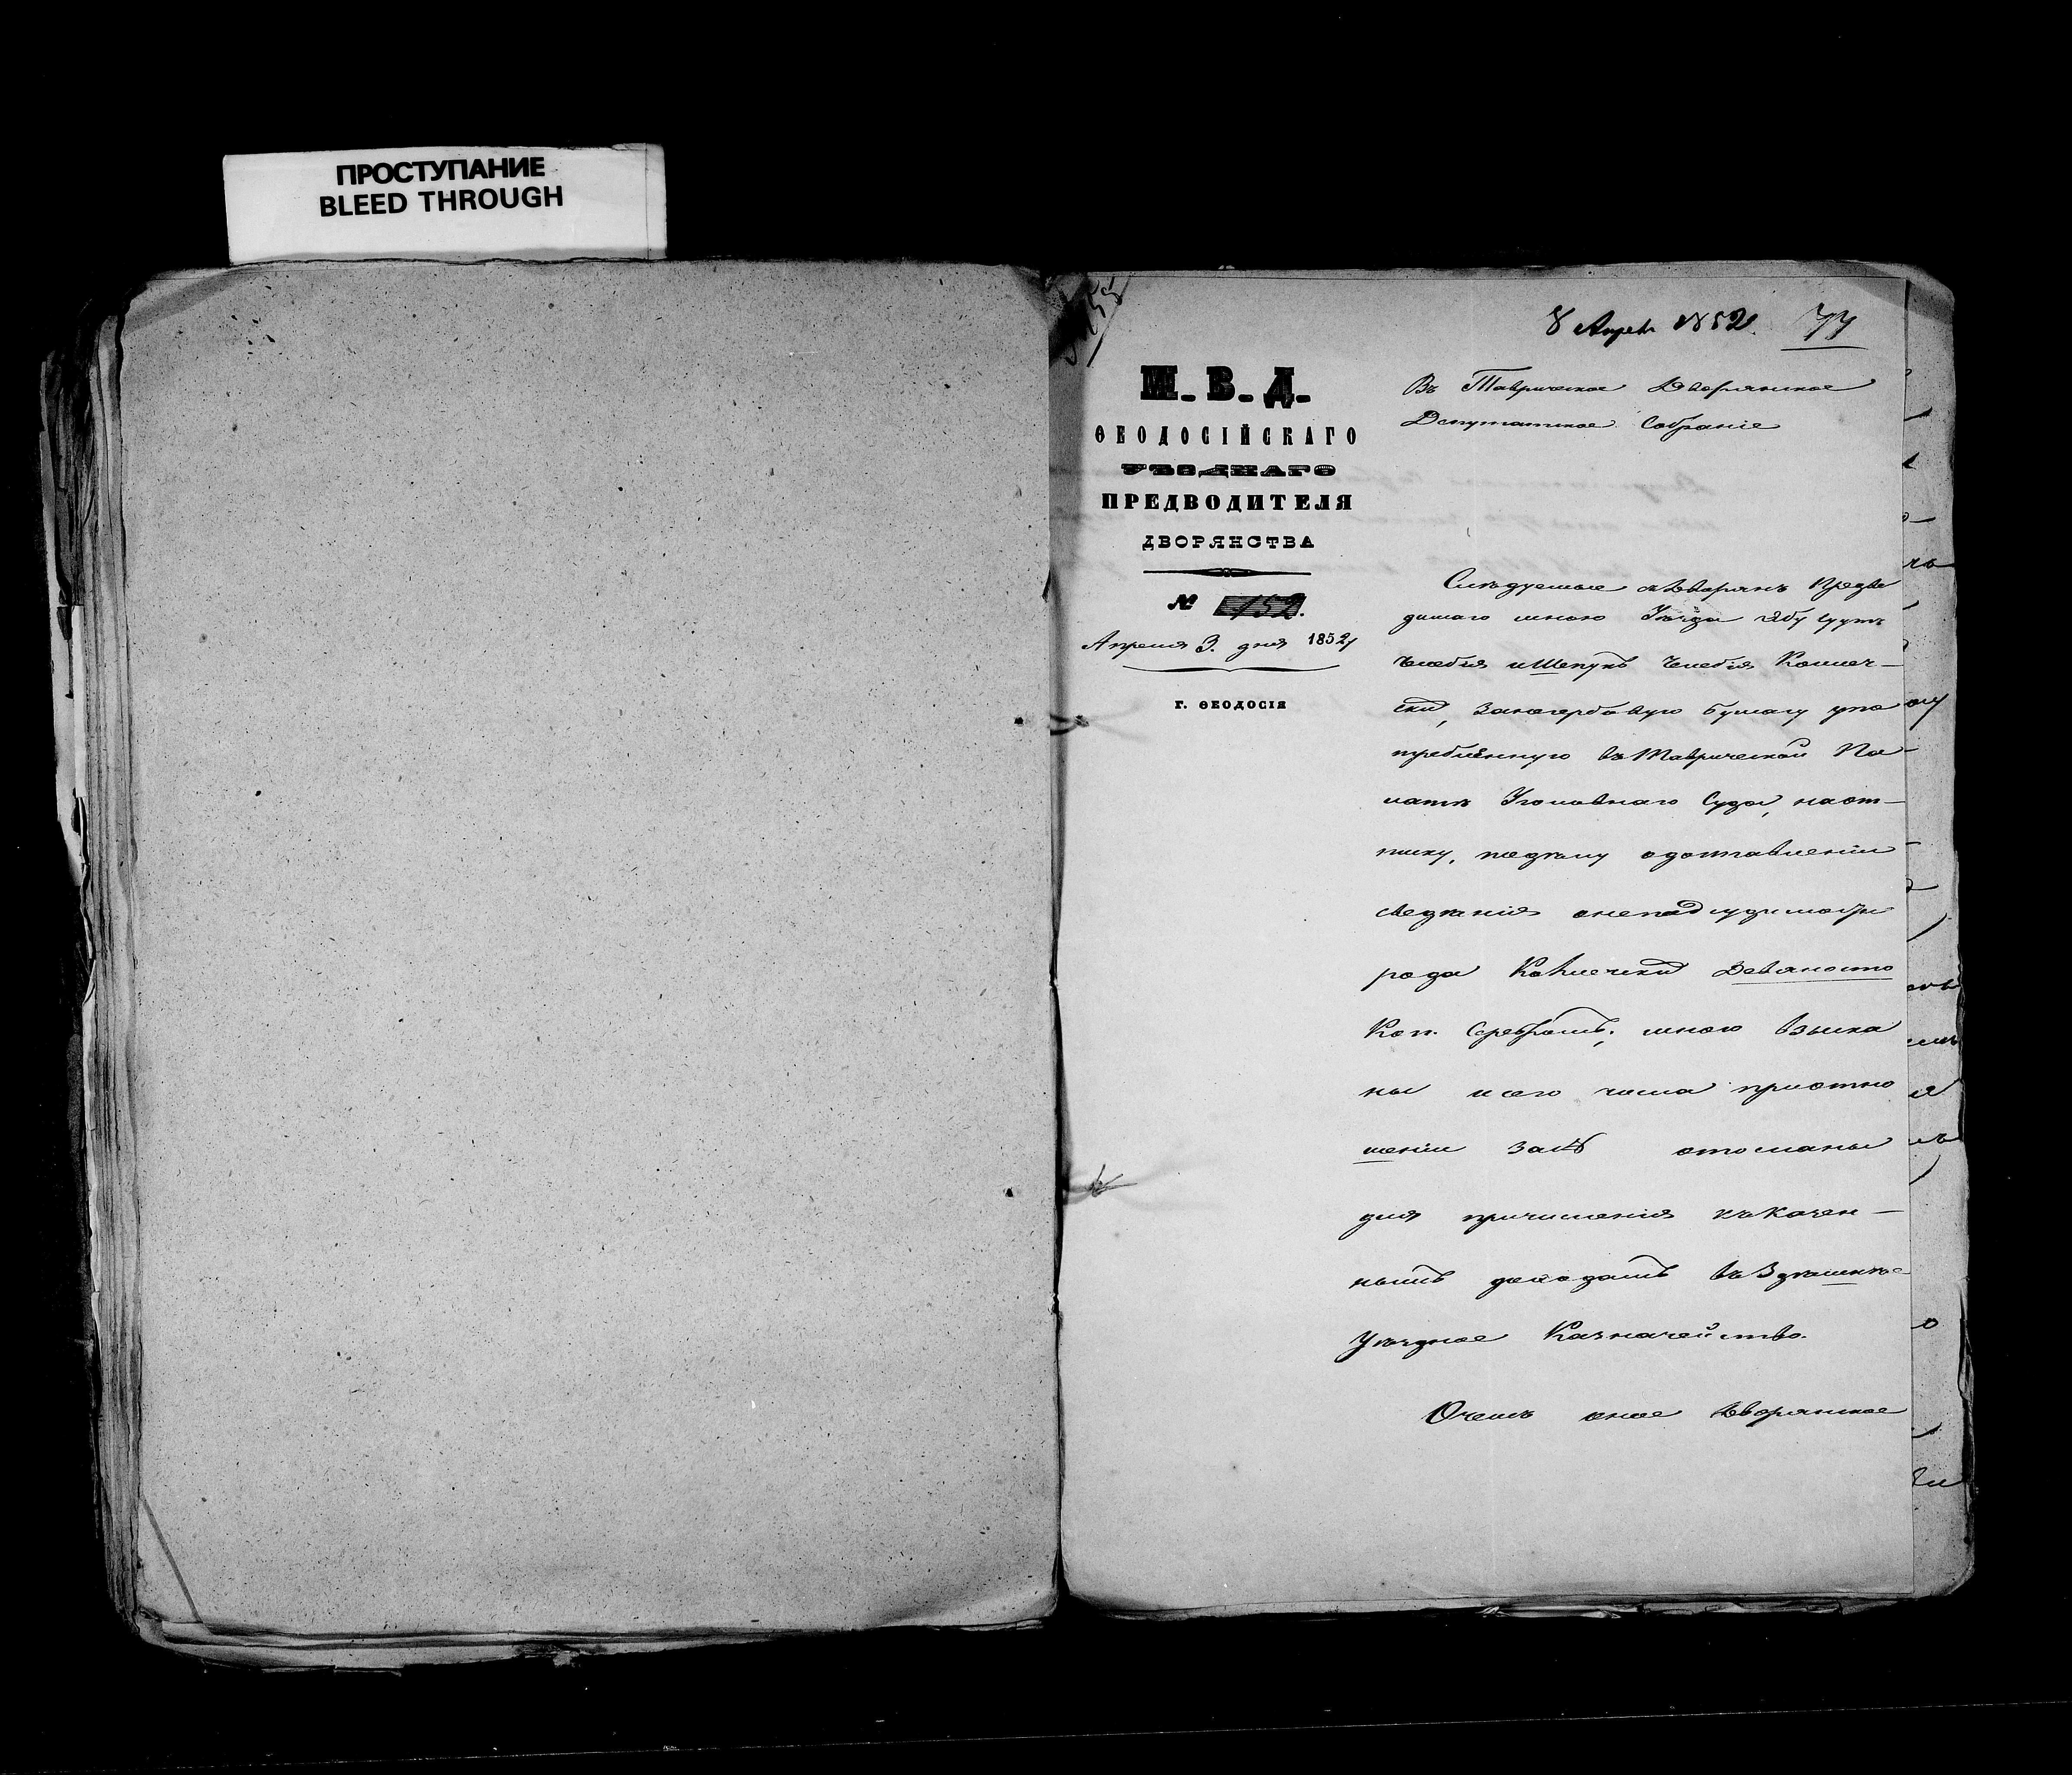 ПРОСТУПАНИЕ
BLEED THROUGH
8 Апрѣл 1852. 77
М. В. Д.
ѲЕОДОСІЙСКАГО
УѢЗДНАГО
ПРЕДВОДИТЕЛЯ
ДВОРЯНСТВА
№ 152.
Апреля 3. дня 1852
Г. ѲЕОДОСІЯ
Въ Таврическое Дворянское
Депутатское Собраніе
Слѣдуемые Дворянъ Предво
димаго мною Уѣзда Абу
челебія и челебія
загербовую бумагу упо
требленную въ Таврической Па-
латѣ Уголовнаго Суда, наот-
писку, подѣлу одоставленіи
сведѣнія онеподсудимости
рода Девяносто
Коп. Серебромъ, мною взыска
ны и сего числа приотно
шеніи за № отосланы
для причисленія къ Казен-
нымъ доходамъ въ Здѣшнѣе
Уѣздное Казначейство.
Очемъ оное Дворянское